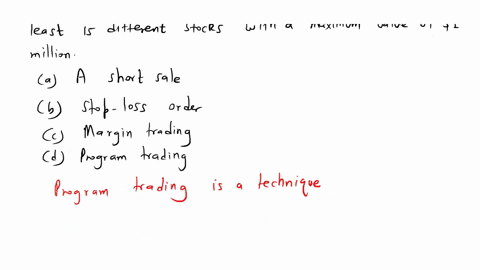 least 15 different stocks with a maximum value of $1
million.
(a) A short sale
(b) Stop-loss order
(c) Margin trading
(d) Program trading
Program trading is a technique